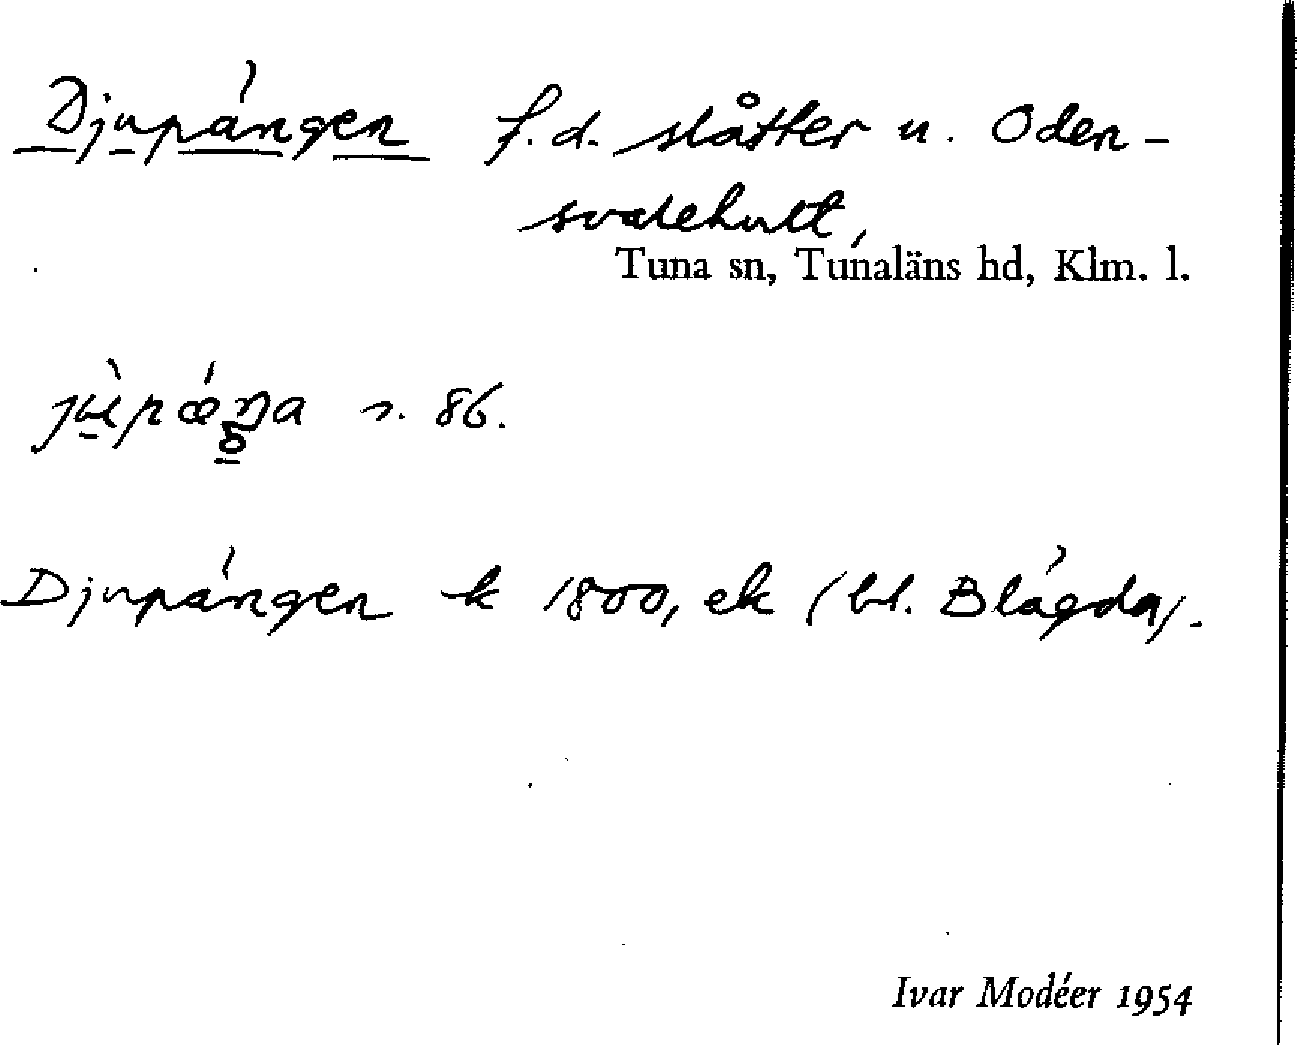 Djupängen f.d. slåtter u. Oden-
svalehult,
Tuna sn, Tunaläns hd, Klm. l.
s. 86.
Djupängen k 1800, ek (bl. Blågda).
Ivar Modéer 1954